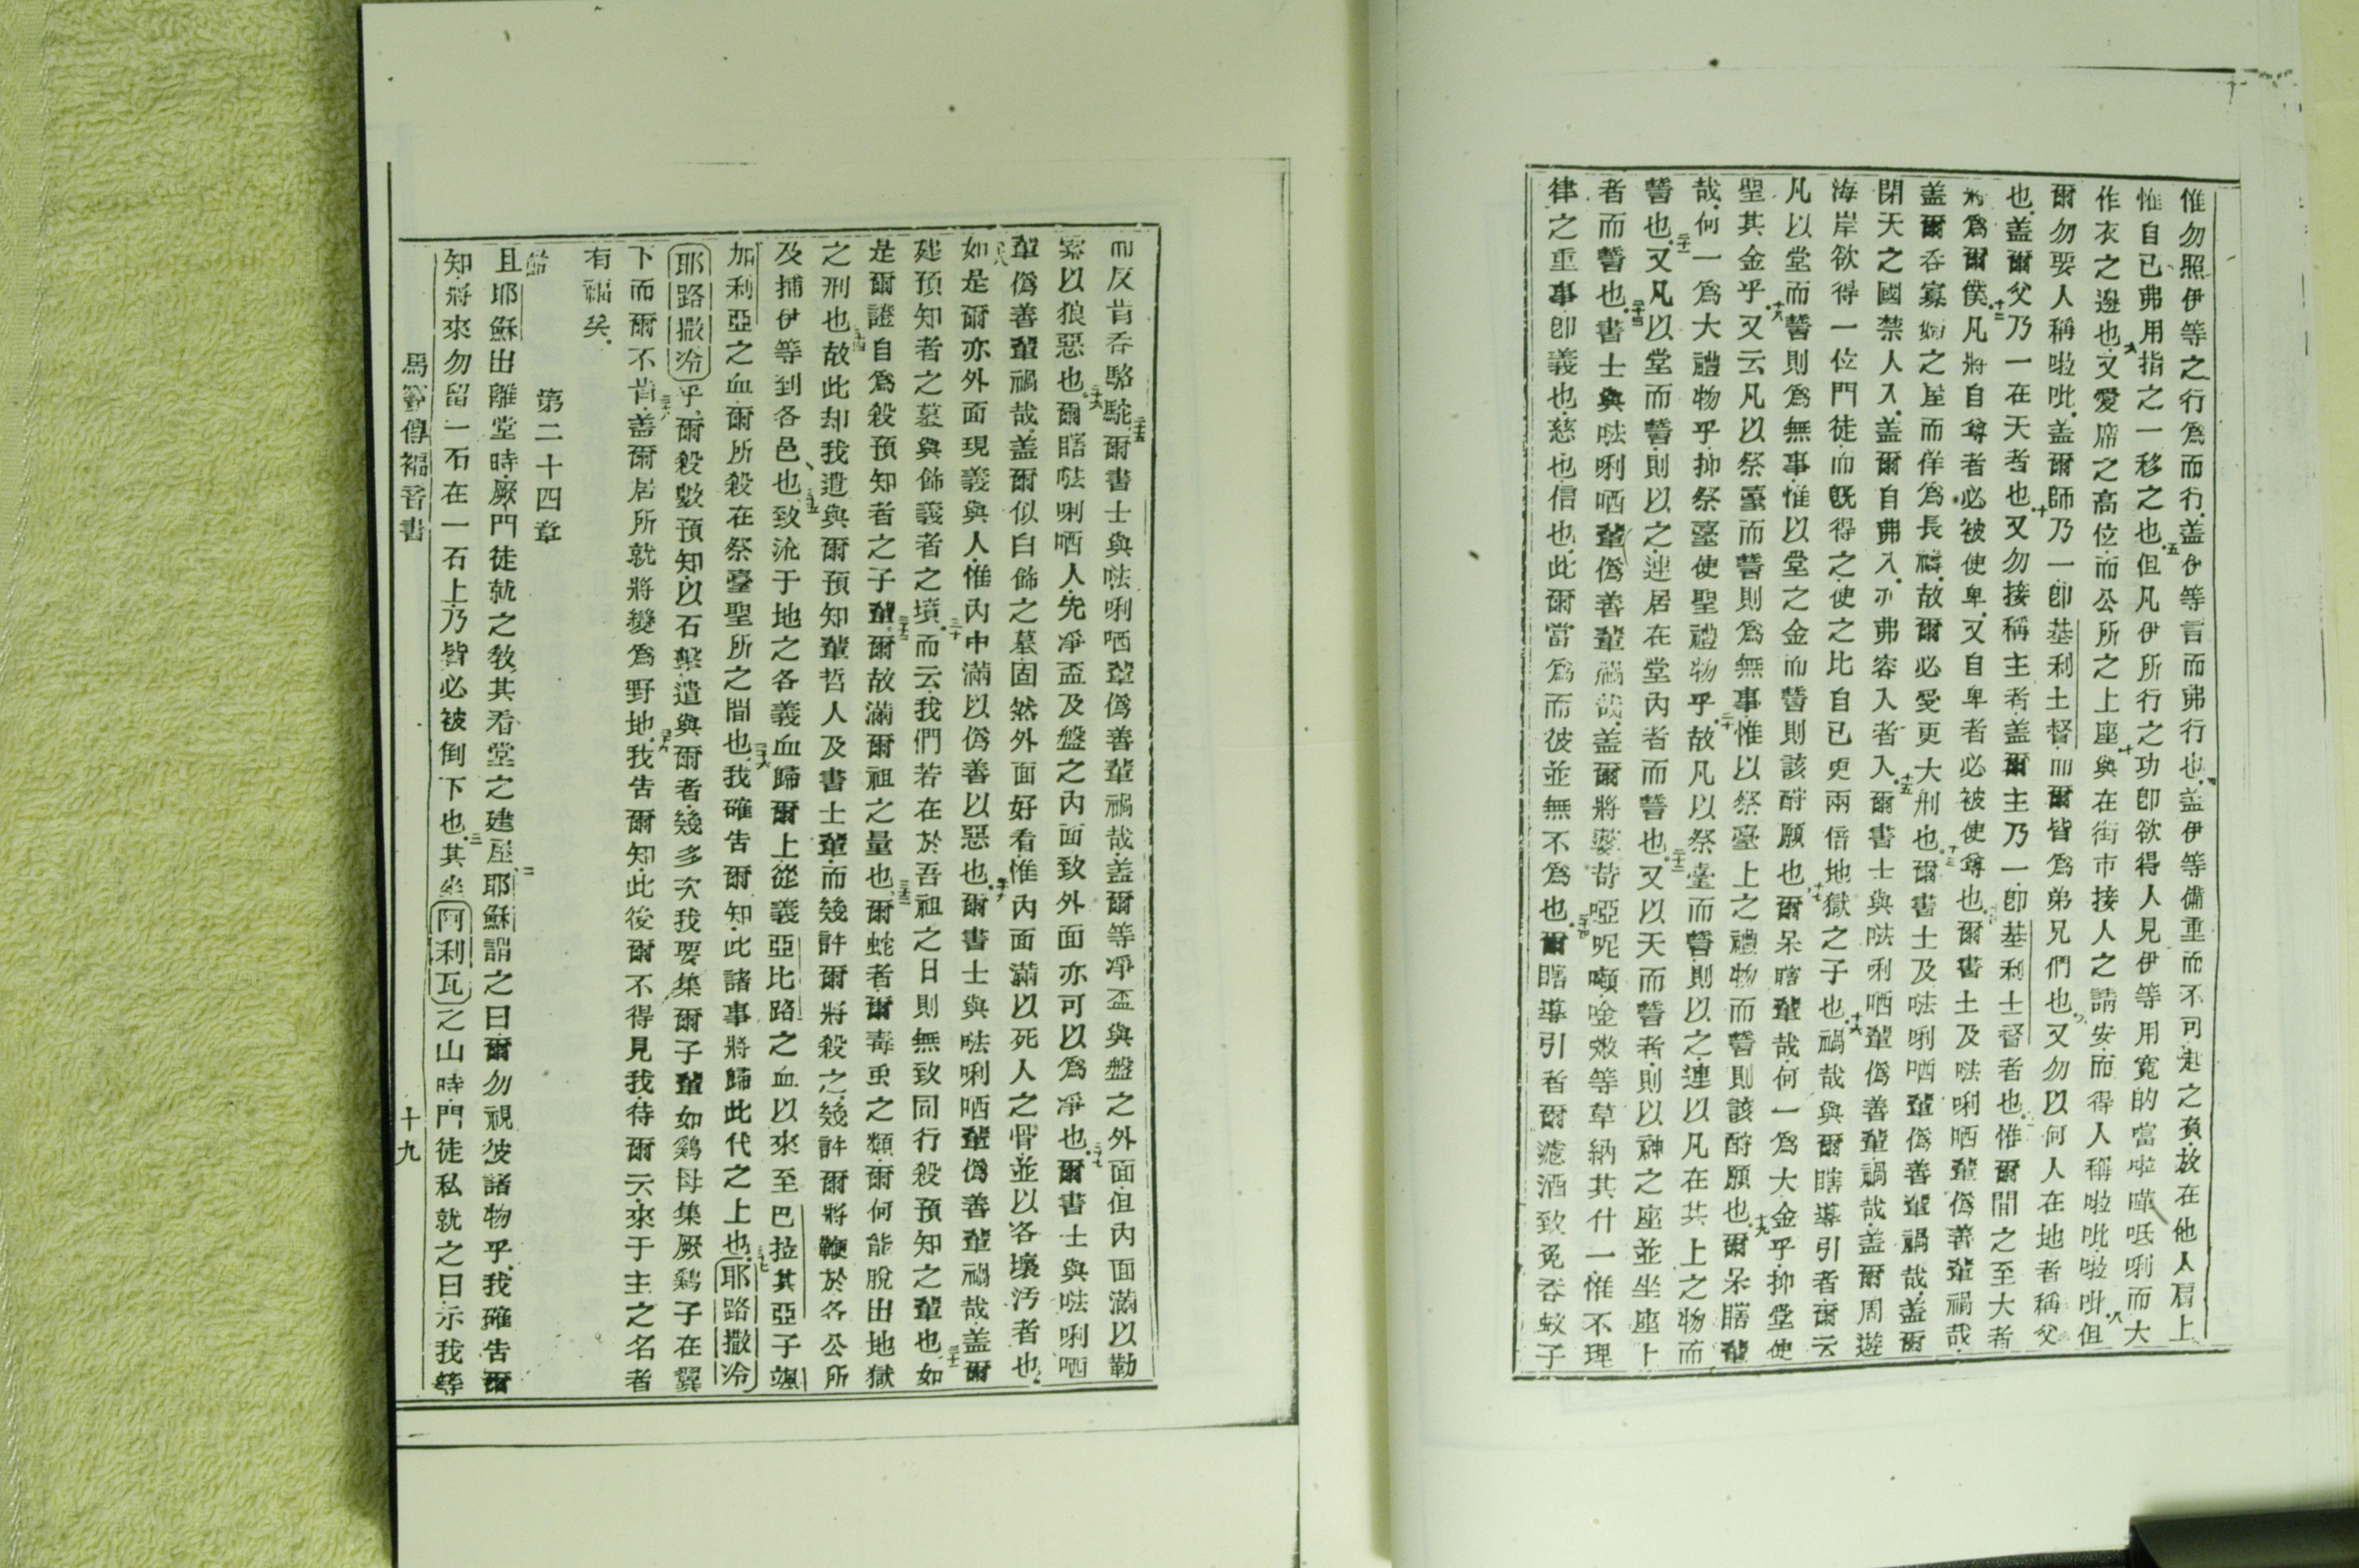 惟勿照伊等之行爲而行盖伊等言而弗行也盖伊等備重而不可之負放在他人肩上
惟自己弗用指之一移之也五但凡伊所行之功卽欲得人見伊等用寬的當啦嘩呧唎而大
作衣之邊也六又愛席之高位而公所之上座七與在街市接人之請安而得人稱啦吡啦吡八但
爾勿要人稱啦吡盖爾師乃一卽基利士督而爾皆爲弟兄們也九又勿以何人在地者稱父
也盖爾父乃一在天者也十又勿接稱主者盖爾主乃一卽基利士督者也惟爾間之至大者
將爲爾僕十二凡將自尊者必被使卑又自卑者必被使尊也爾書士及呿唎哂輩僞善輩禍哉
盖爾吞寡婦之屋而佯爲長禱故爾必受更大刑也十三爾書士及呿唎哂輩僞善輩禍哉盖爾
閉天之國禁人入盖爾自弗入亦弗容入者入十五爾書士與呿唎哂輩僞善輩禍哉盖爾周遊
海岸欲得一位門徒而旣得之使之比自已更兩倍地獄之子也十六禍哉與爾瞎導引者爾云
凡以堂而誓則爲無事惟以堂之金而誓則該酧願也十七爾呆瞎輩哉何一爲大金乎抑堂使
聖其金乎十八又云凡以祭臺而誓則爲無事惟以祭臺上之禮物而誓則該酧願也十九爾呆瞎輩
哉何一爲大禮物乎抑祭臺使聖禮物乎二十故凡以祭臺而誓則以之連以凡在其上之物而
誓也二十一又凡以堂而誓則以之連居在堂內者而誓也二十二又以天而誓者則以神之座並坐座上
者而誓也二十三書士與呿唎哂輩僞善輩禍哉盖爾將等草納其什一惟不理
律之重事卽義也慈也信也此爾當爲而彼並無不爲也二十四爾瞎導引者爾濾酒致免吞蚊子
而反肯吞駱駝二十五爾書士與呿唎哂輩僞善輩禍哉盖爾等凈盃與盤之外面但內面滿以勒
索以狼惡也二十六爾瞎呿唎哂人先凈盃及盤之內面致外面亦可以爲凈也二十七爾書士與呿唎哂
輩僞善輩禍哉盖爾似白飾之墓固然外面好看惟內面滿以死人之骨並以各壞汚者也
如是爾亦外面現義與人惟內中滿以僞善以惡也爾書士與呿唎哂輩僞善輩禍哉盖爾
建預知者之墓與飾義者之墳三十而云我們若在於吾祖之日則無致同行殺預知之輩也三十一如
是爾證自爲殺預知者之子輩三十二爾故滿爾祖之量也三十三爾蛇者爾毒虫之類爾何能脫出地獄
之刑也三十四故此却我遣與爾預知輩哲人及書士輩而幾許爾將殺之幾許爾將鞭於各公所
及捕伊等到各邑也三十五致流于地之各義血歸爾上從義亞比路之血以來至巴拉其亞子颯
加利亞之血爾所殺在祭臺聖所之間也三十六我確告爾知此諸事將歸此代之上也三十七耶路撒冷
耶路撒冷乎爾殺數預知以石擊遣與爾者幾多次我要集爾子輩如鷄母集厥鷄子在翼
下而爾不肯三十八盖爾居所就將變爲野地三十九我告爾知此後爾不得見我待爾云來于主之名者
有福矣
第二十四章
節一且耶穌出離堂時厥門徒就之敎其看堂之建屋二耶穌謂之曰爾勿視彼諸物乎我確告爾
知將來勿留一石在一石上乃皆必被倒下也三其坐阿利瓦之山時門徒私就之曰示我等
馬竇傳福音書 十九